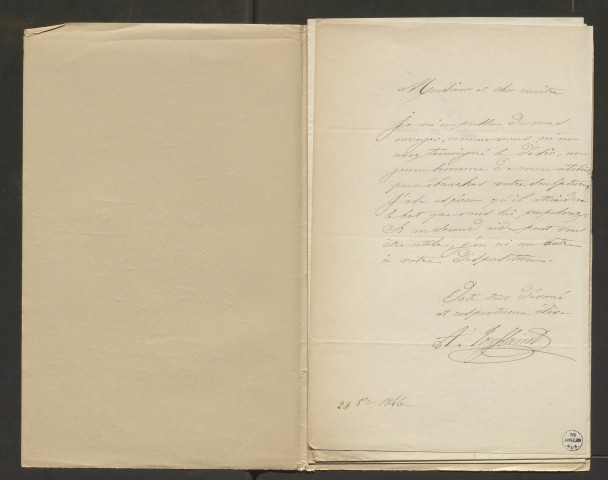 Monsieur et cher maître
je m'empresse de vous
envoyer, comme vous m'en
avez témoigné le désir, un
jeune homme de mon atelier
pour ébaucher votre
j'ose espérer qu'il atteindra
le but que vous lui proposez.
Si un second aide peut vous
être utile, j'en ai un autre
à votre disposition.
Votre très dévoué
et respectueux élève
A. Toussaint
28 8bre